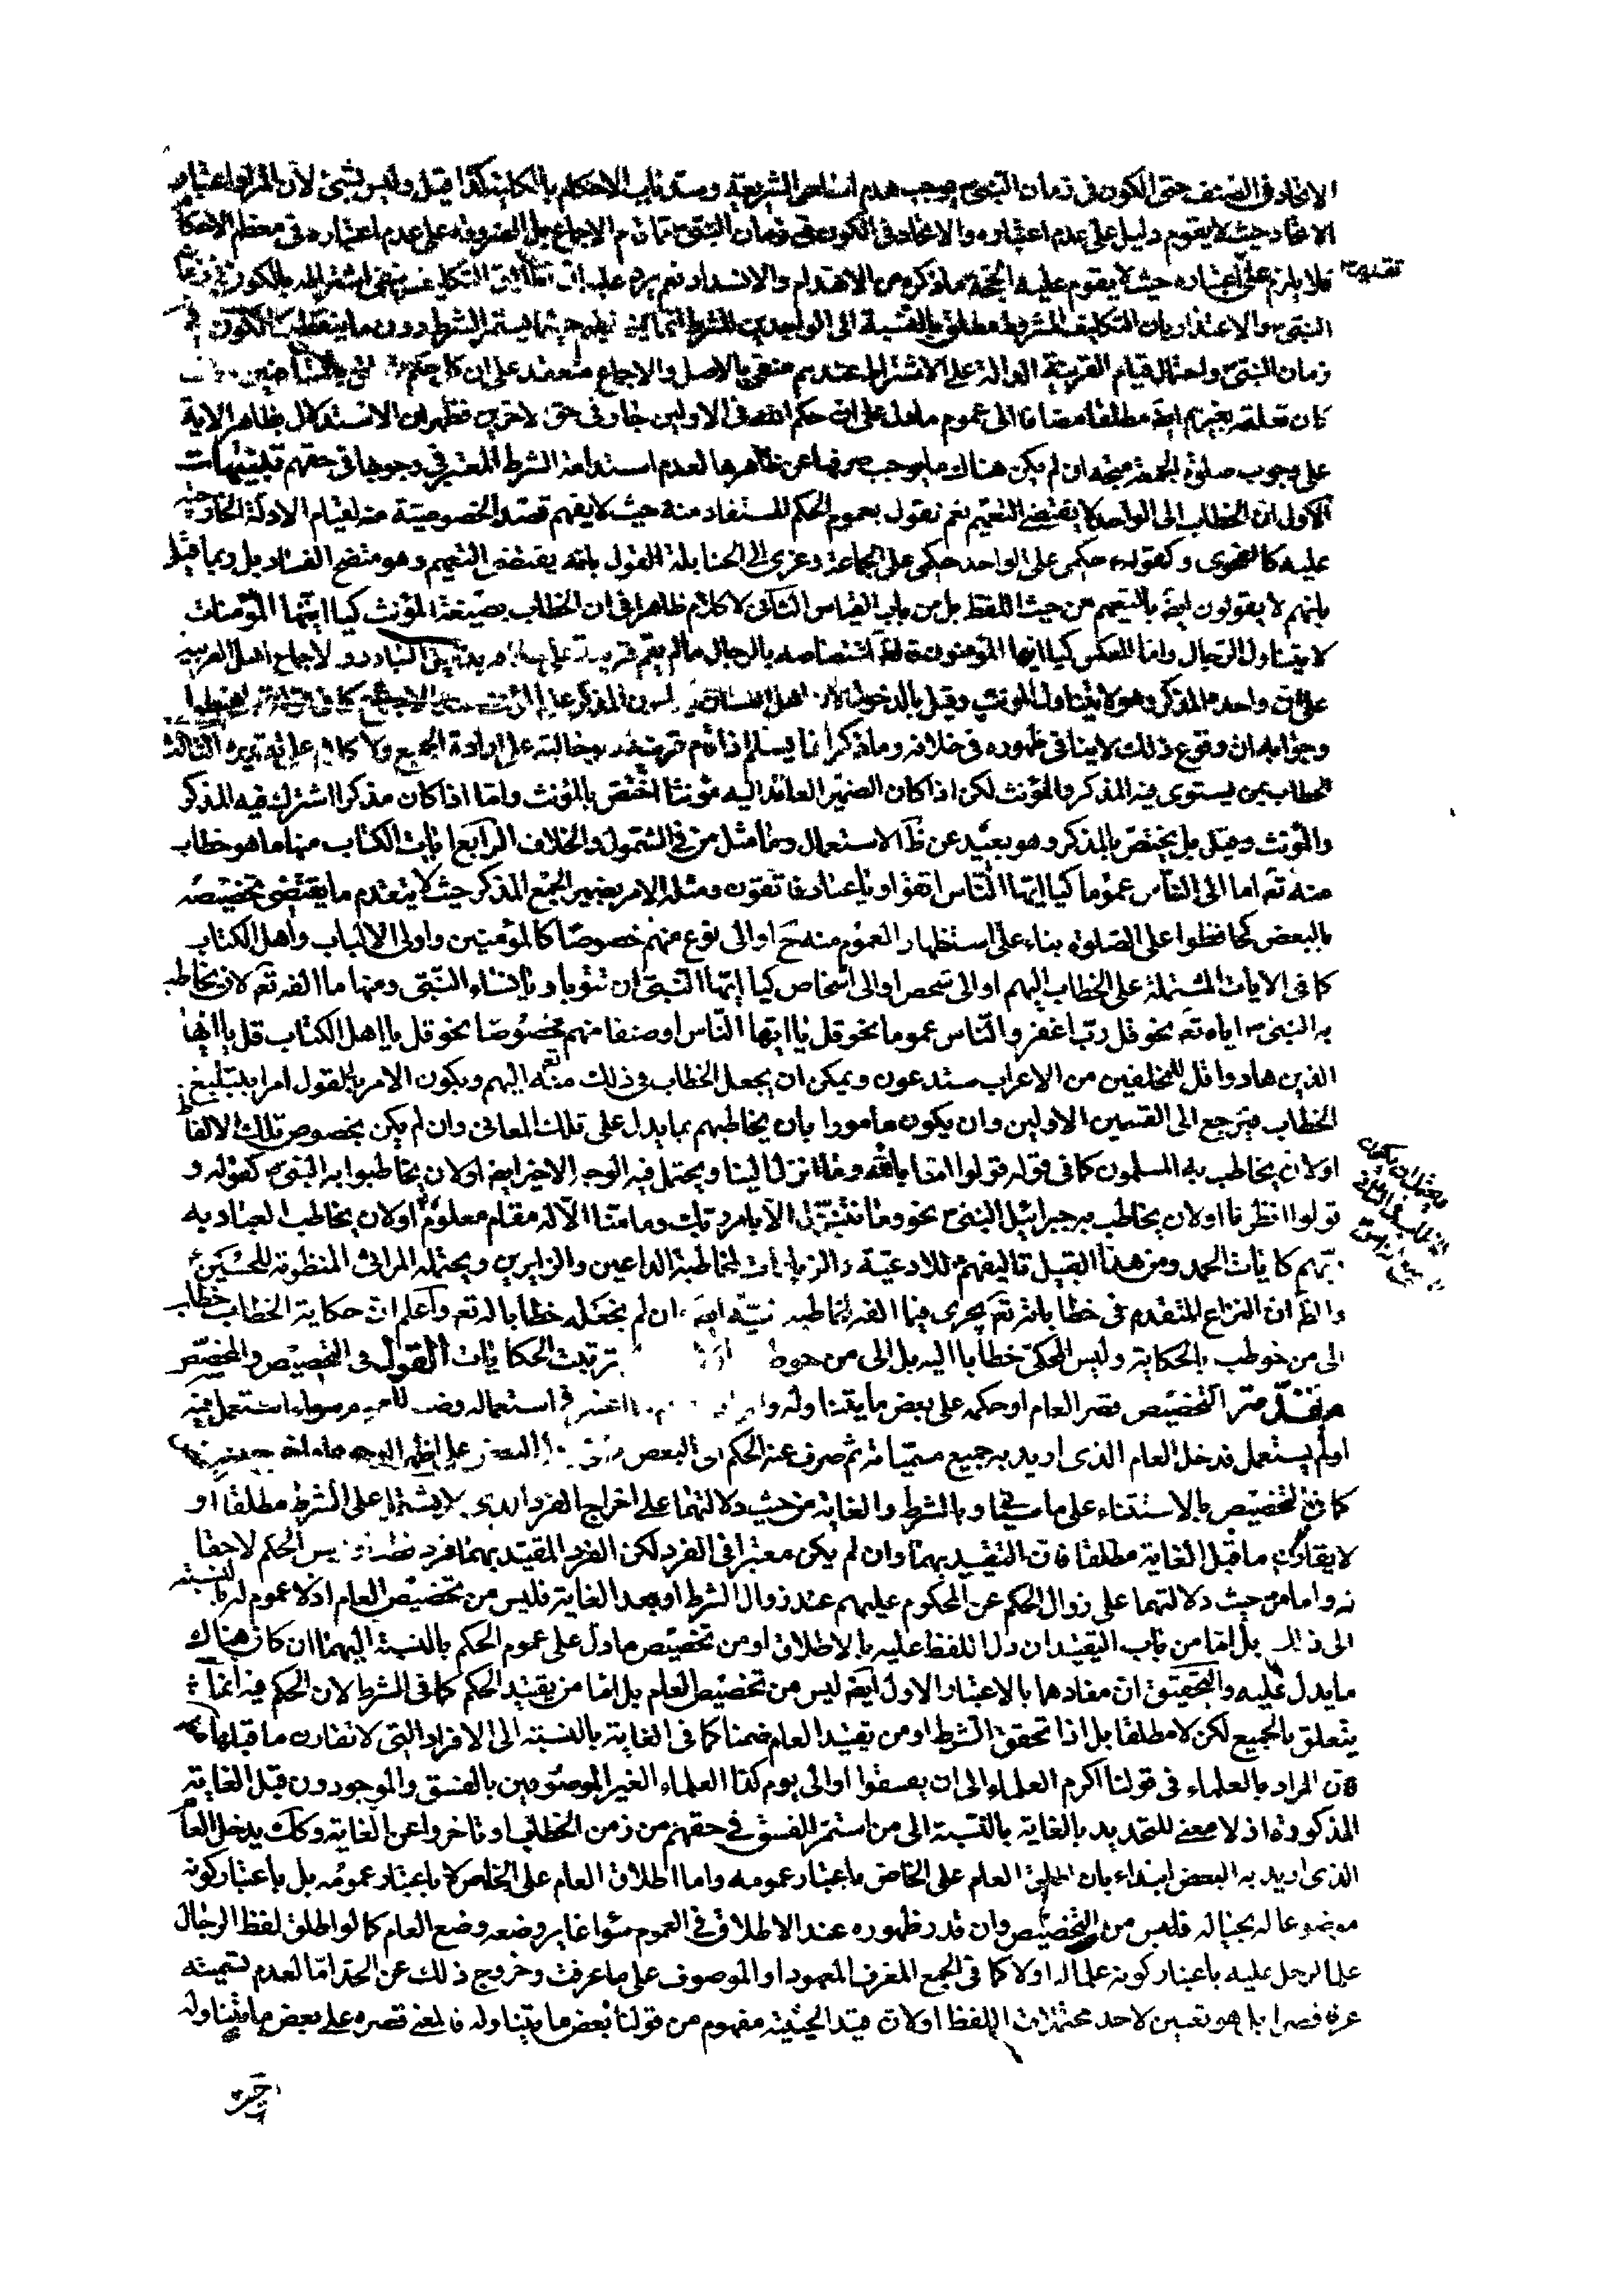 الاتحاد في الصنف حتى الكون في زمان النبي ص يوجب هدم اساس الشريعة وسد باب الاحكام بالكلية كذا قيل وليس بشئ لان المراد اعتبار
الاتحاد حيث لا يقوم دليل على عدم اعتباره والاتحاد في الكون في زمان النبي ص مما قام الاجماع بل الضرورة على عدم اعتباره في معظم الاحكام
فلا يلزم على اعتباره حيث لا يقوم عليه الحجة ما ذكره من الانهدام والانسداد نعم يرد عليه ان
النبي ص والاعتذار بان التكليف المشروط مطلق بالنسبة الى الواجدين للشرط انما يتم فيهم حيثما يستمر الشرط دون ما ينقطع كالكون في
زمان النبي ص واحتمال قيام القرينة الدالة على الاشتراط عندهم منفي بالاصل والاجماع منعقد على ان كل حكم
كان تعلقه بغيرهم ايضا مطلقا مضافا الى عموم ما دل على ان حكم الله في الاولين جار في حق الاخرين فظهر ان الاستدلال بظاهر الاية
على وجوب صلوة الجمعة متجه ان لم يكن هناك ما يوجب صرفها عن ظاهرها لعدم استدامة الشرط المعتبر في وجوبها في حقهم تنبيهات
الاول ان الخطاب الى الواحد لا يقتضي التعميم نعم نقول بعموم الحكم المستفاد منه حيث لا يفهم قصد الخصوصية منه لقيام الادلة الخارجية
عليه كالفحوى وكقوله ص حكمي على الواحد حكمي على الجماعة وعزى الى الحنابلة القول بانه يقتضي التعميم وهو متضح الفساد بل ربما قيل
بانهم لا يقولون ايضا بالتعميم من حيث اللفظ بل من باب القياس الثاني لا كلام ظاهرا في ان الخطاب بصيغة المؤنث كيا ايتها المؤمنات
لا يتناول الرجال واما العكس كيا ايها المؤمنون فالحق اختصاصه بالرجال ما لم يقم قرينة على للتبادر ولاجماع اهل العربية
على ان واحده المذكر وهو لا يتناول المونث وقيل بالدخول لان اهل اللسان يغلبون المذكر على المؤنث عند الاجتماع كما في قوله تعالى اهبطوا
وجوابه ان وقوع ذلك لا ينافي ظهوره في خلافه وما ذكر انما يسلم اذا قام قرينة حالية على ارادة الجميع ولا كلام على تقديره الثالث
الخطاب بمن يستوى فيه المذكر والمؤنث لكن اذا كان الضمير العائد اليه مؤنثا اختص بالمؤنث واما اذا كان مذكرا اشترك فيه المذكر
والمؤنث وقيل بل يختص بالمذكر وهو بعيد عن ظ الاستعمال وما مثل من في الشمول والخلاف الرابع ايات الكتاب منها ما هو خطاب
منه تع اما الى الناس عموما كيا ايها الناس اتقوا ويا عباد فاتقون ومثله الامر بضمير الجمع المذكر حيث لا يتقدم ما يقتضي تخصيصه
بالبعض كحافظوا على الصلوة بناء على استظهار العموم منه ح او الى نوع منهم خصوصا كالمؤمنين واولى الالباب واهل الكتاب
كما في الايات المشتملة على الخطاب اليهم او الى شخص او الى اشخاص كيا ايها النبي ان تتوبا ويا نساء النبي ومنها ما الفه تع لان يخاطب
به النبي ص اياه تع نحو قل رب اغفر والناس عموما نحو قل يا ايها الناس او صنفا منهم مخصوصا نحو قل يا اهل الكتاب قل يا ايها
الذين هادوا قل للمخلفين من الاعراب ستدعون ويمكن ان يجعل الخطاب في ذلك منه تع اليهم ويكون الامر بالقول امرا بتبليغ
الخطاب فيرجع الى القسمين الاولين وان يكون مامورا بان يخاطبهم بما يدل على تلك المعاني وان لم يكن بخصوص تلك الالفاظ
او لان يخاطب به المسلمون كما في قوله قولوا امنا بالله وما انزل الينا ويحتمل فيه الوجه الاخير ايضا او لان يخاطبوا به النبي ص كقوله و
قولوا انظرنا او لان يخاطب به جبرائيل النبي ص نحو وما نتنزل الا بامر ربك وما منا الا له مقام معلوم او لان يخاطب العباد به
ربهم كايات الحمد ومن هذا القبيل تاليفهم ع للادعية والزيارات لمخاطبة الداعين والزايرين ويحتمله المراثي المنظومة للحسين ع
والظ ان النزاع المتقدم في خطاباته تع يجرى فيما الفه لمخاطبة نبيه ايضا ان لم نجعله خطابا له تع واعلم ان حكاية الخطاب خطاب
الى من خوطب بالحكاية وليس المحكي خطابا اليه بل الى من خوطب ترتبت الحكايات القول في التخصيص والمخصص
مقدمة التخصيص قصر العام او حكمه على بعض ما يتناوله في استعماله سواء استعمل فيه
او لم يستعمل فدخل العام الذي اريد به جميع مسمياته ثم صرف عنه الحكم الى البعض
كما في التخصيص بالاستثناء على ما سيجئ وبالشرط والغاية من حيث دلالتهما على اخراج الفرد الذي لا يشتمل على الشرط مطلقا او
لا يقارن ما قبل الغاية مطلقا فان التقييد بهما وان لم يكن معتبرا في الفرد لكن الفرد المقيد بهما فرد الحكم لاحقا
له واما من حيث دلالتهما على زوال الحكم عن المحكوم عليهم عند زوال الشرط او بعد الغاية فليس من تخصيص العام اذ لا عموم له بالنسبة
الى ذلك بل اما من باب التقييد ان دل اللفظ عليه بالاطلاق او من تخصيص ما دل على عموم الحكم بالنسبة اليهما ان كان هناك
ما يدل عليه والتحقيق ان مفادهما بالاعتبار الاول ايضا ليس من تخصيص العام بل اما من تقييد الحكم كما في الشرط لان الحكم فيه انما
يتعلق بالجميع لكن لا مطلقا بل اذا تحقق الشرط او من تقييد العام ضمنا كما في الغاية بالنسبة الى الافراد التي لا تقارن ما قبلها
فان المراد بالعلماء في قولنا اكرم العلماء الى ان يفسقوا او الى يوم كذا العلماء الغير الموصوفين بالفسق والموجودون قبل الغاية
المذكورة اذ لا معنى للتحديد بالغاية بالنسبة الى من استمر الفسق في حقهم من زمن الخطاب او تاخروا عن الغاية وكك يدخل العام
الذي اريد به البعض ابتداء بان اطلق العام على الخاص باعتبار عمومه واما اطلاق العام على الخاص لا باعتبار عمومه بل باعتبار كونه
موضوعا له بحياله فليس من التخصيص وان قدر ظهوره عند الاطلاق في العموم سواء غاير وضعه وضع العام كما لو اطلق لفظ الرجال
علما لرجل عليه باعتبار كونه علما له او لا كما في الجمع المعرف المعهود او الموصوف على ما عرفت وخروج ذلك عن الحد اما لعدم تسميته
عرفا قصرا بل هو تعيين لاحد محتملات اللفظ او لان قيد الحيثية مفهوم من قولنا بعض ما يتناوله فالمعنى قصره على بعض ما يتناوله